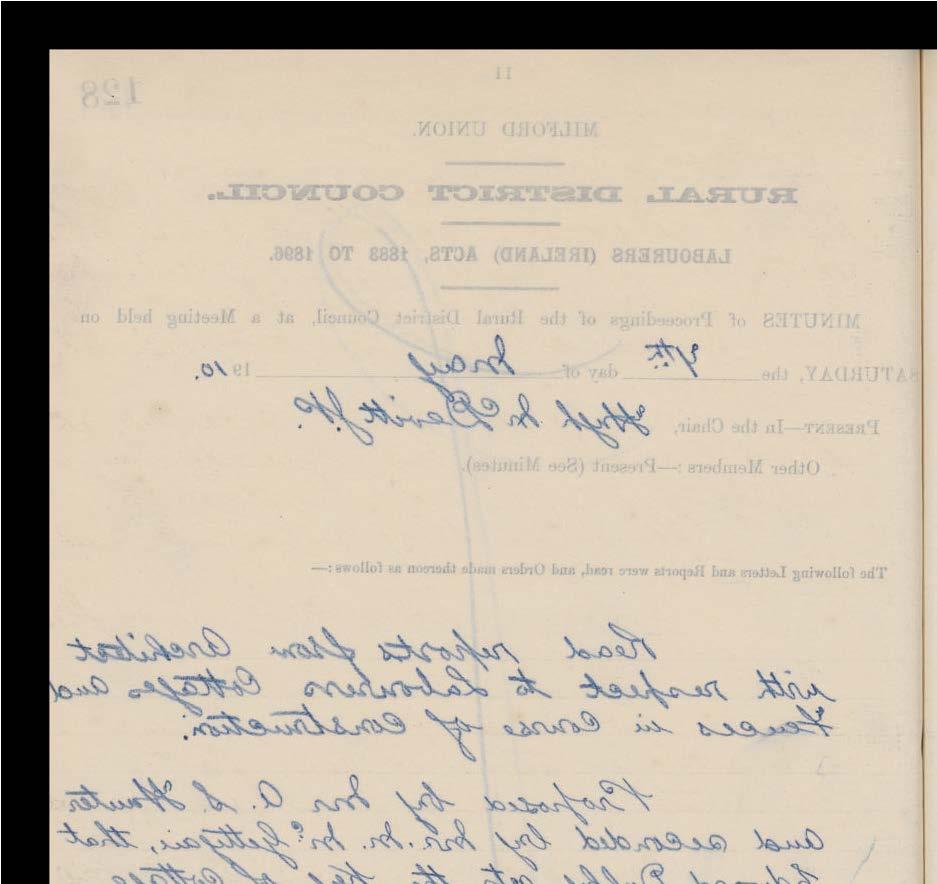 11
128
MILFORD UNION.
RURAL DISTRICT COUNCIL.
LABOURERS (IRELAND) ACTS, 1883 TO 1896.
MINUTES of Proceedings of the Rural District Council, at a Meeting held on
SATURDAY, the 7th day of May 1910.
PRESENT—In the Chair, Hugh McDevitt J.P.
Other Members :—Present (See Minutes).
The following Letters and Reports were read, and Orders made thereon as follows:—
Read reports from Architect
with respect to Labourers Cottages and
Fences in Course of Construction.
Proposed by Mr A. S. Hunter
and seconded by Mr. M. McGettigan, that
Edward get the key of Cottage